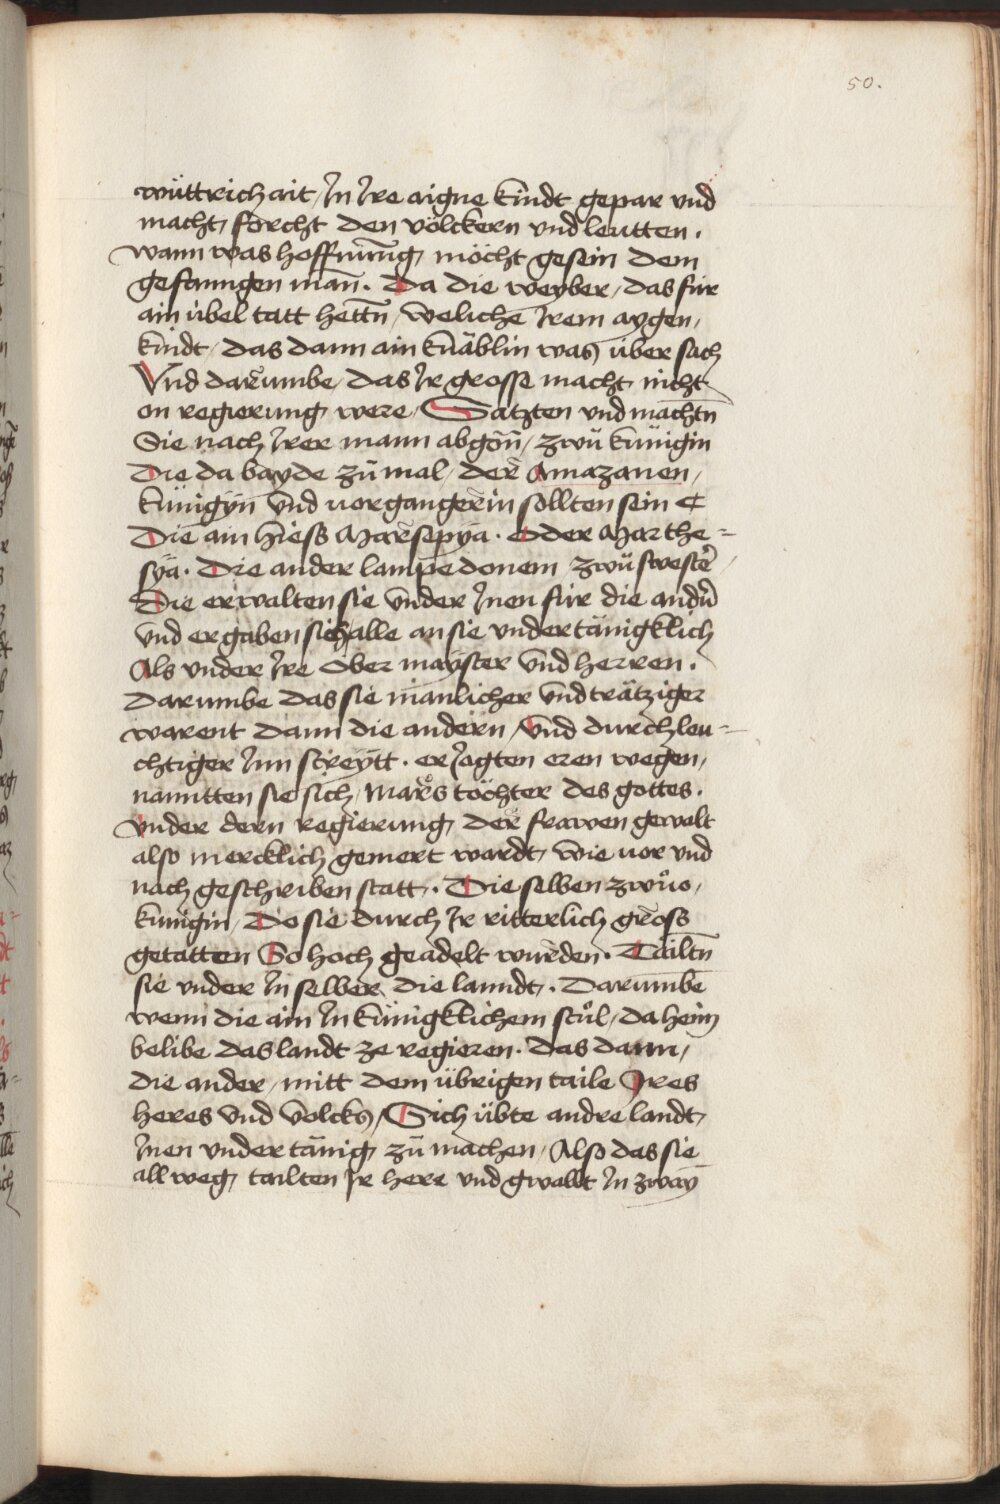 50.
wüttrichait / In Ire aigne kindt gepar vnd
macht, forcht den völckern vnd leutten.
wann was hoffnung, möcht gesein dem
gefanngen man̄. Da die weyber / das für
ain übel tatt hettn̄ / welichē Irem aygen,
kindt / das dann ain knäblin was, über sach
Vnd darumbe / das Ir grosse macht, nicht
on regierung, were / Satzten vnd machtn̄
Sie nach Irer mann abgön̄ / zwü künigin
Die da bayde zů mal / der Amazanen,
künigyn vnd uorgangerin sollten sein
Die ain hiess Marsepya. Oder Marthe=
sya. Die ander lampedonem zwü swester
Die erwalten sie vnder Inen für die andn̄
vnd ergaben sich alle an sie vndertänigklich
Als vnder Ire ober mayster vnd herren.
Darumbe das sie manlicher vnd trätziger
warent dann die andern / vnd durchleu=
chtiger Inn streytt. erJagten eren wegen,
nanntten sie sich, Mars töchter des gottes.
vnder dern regierung, der frawen gewalt
also mercklich gemert wardt, wie uor vnd
nach geschriben statt. Die selben zwůo,
künigin / Do sie durch Ir ritterlich gross
getatten So hoch geadelt wurden. Tailtn̄
sie vnder In selber die lanndt. Darumbe
wenn die ain In künigklichem stůl / da heim
belibe das landt ze regieren. das dann,
die ander / mitt dem übrigen taile Ires
heres vnd volcks / Sich übte andre landt,
Inen vndertänig zů machen / Also das sie
allweg, tailten Ir here vnd gwalt In zway